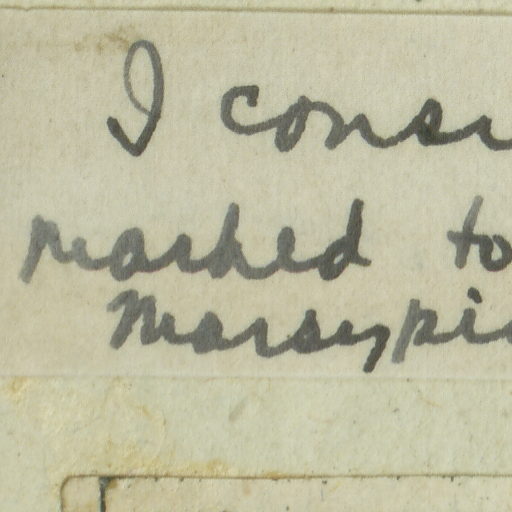 I consi
marked to
Marsypia